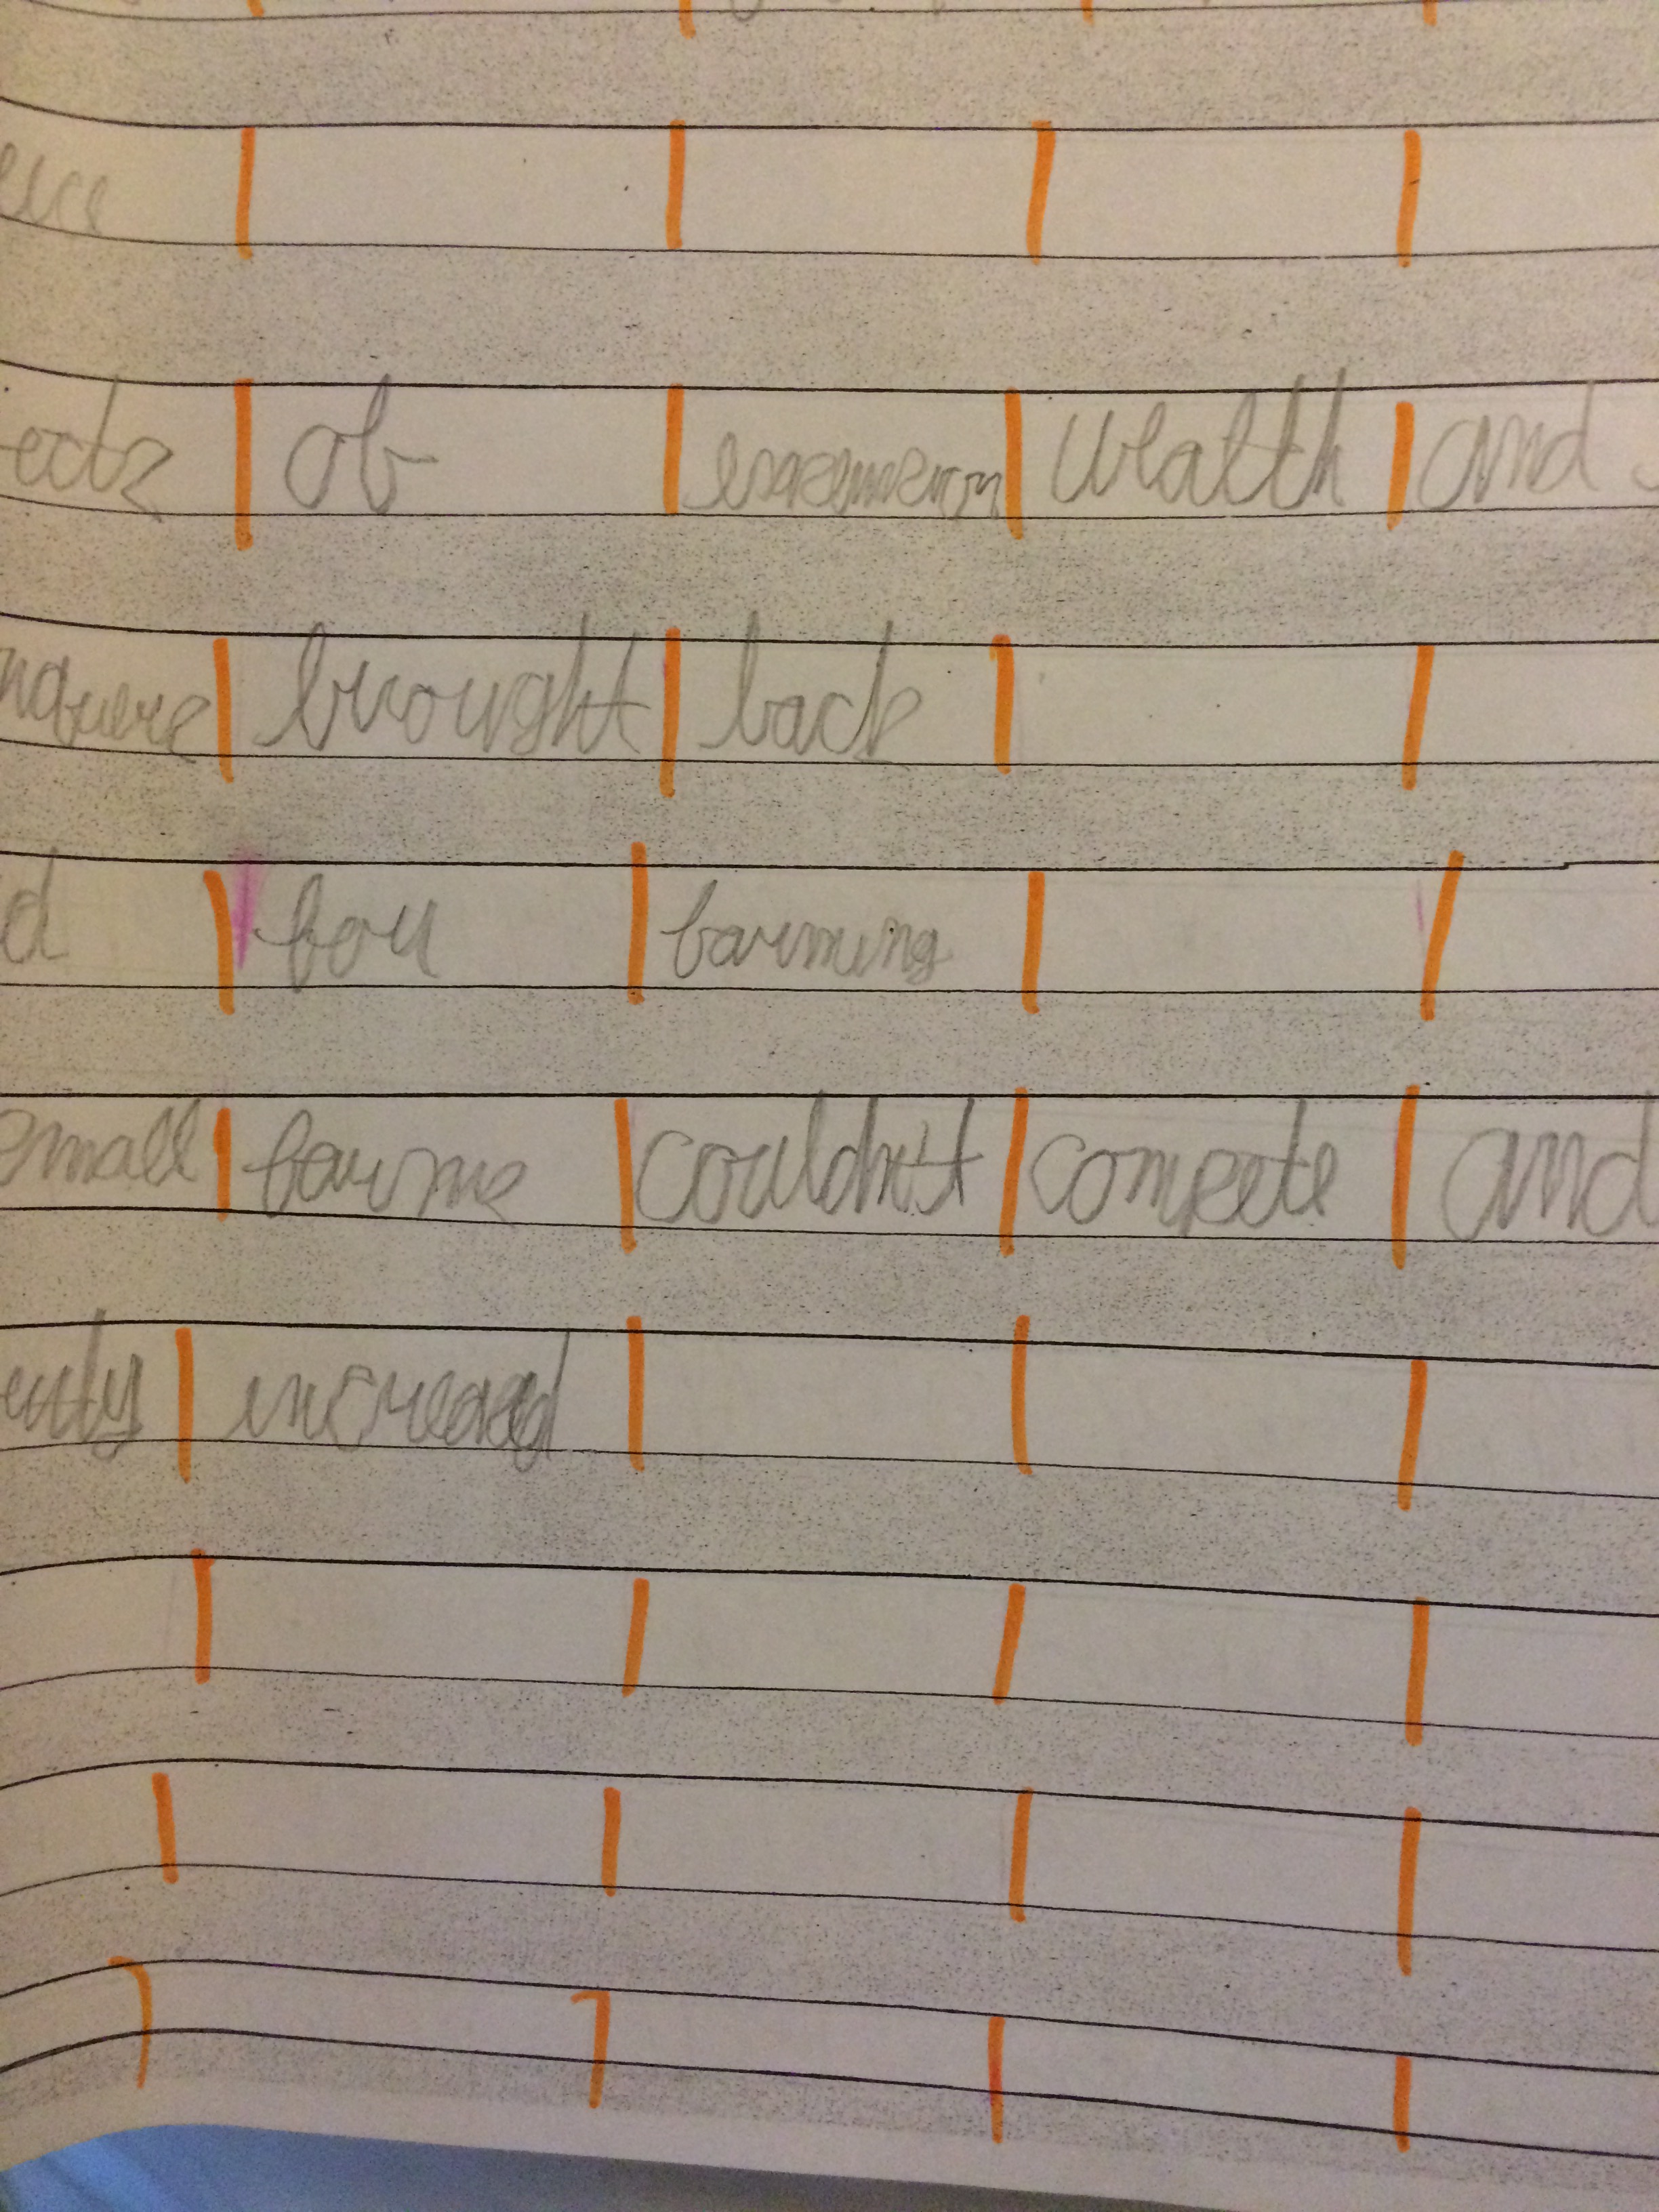 of expansion wealth and
brought back
for farming
small farms couldn't compete and
increased